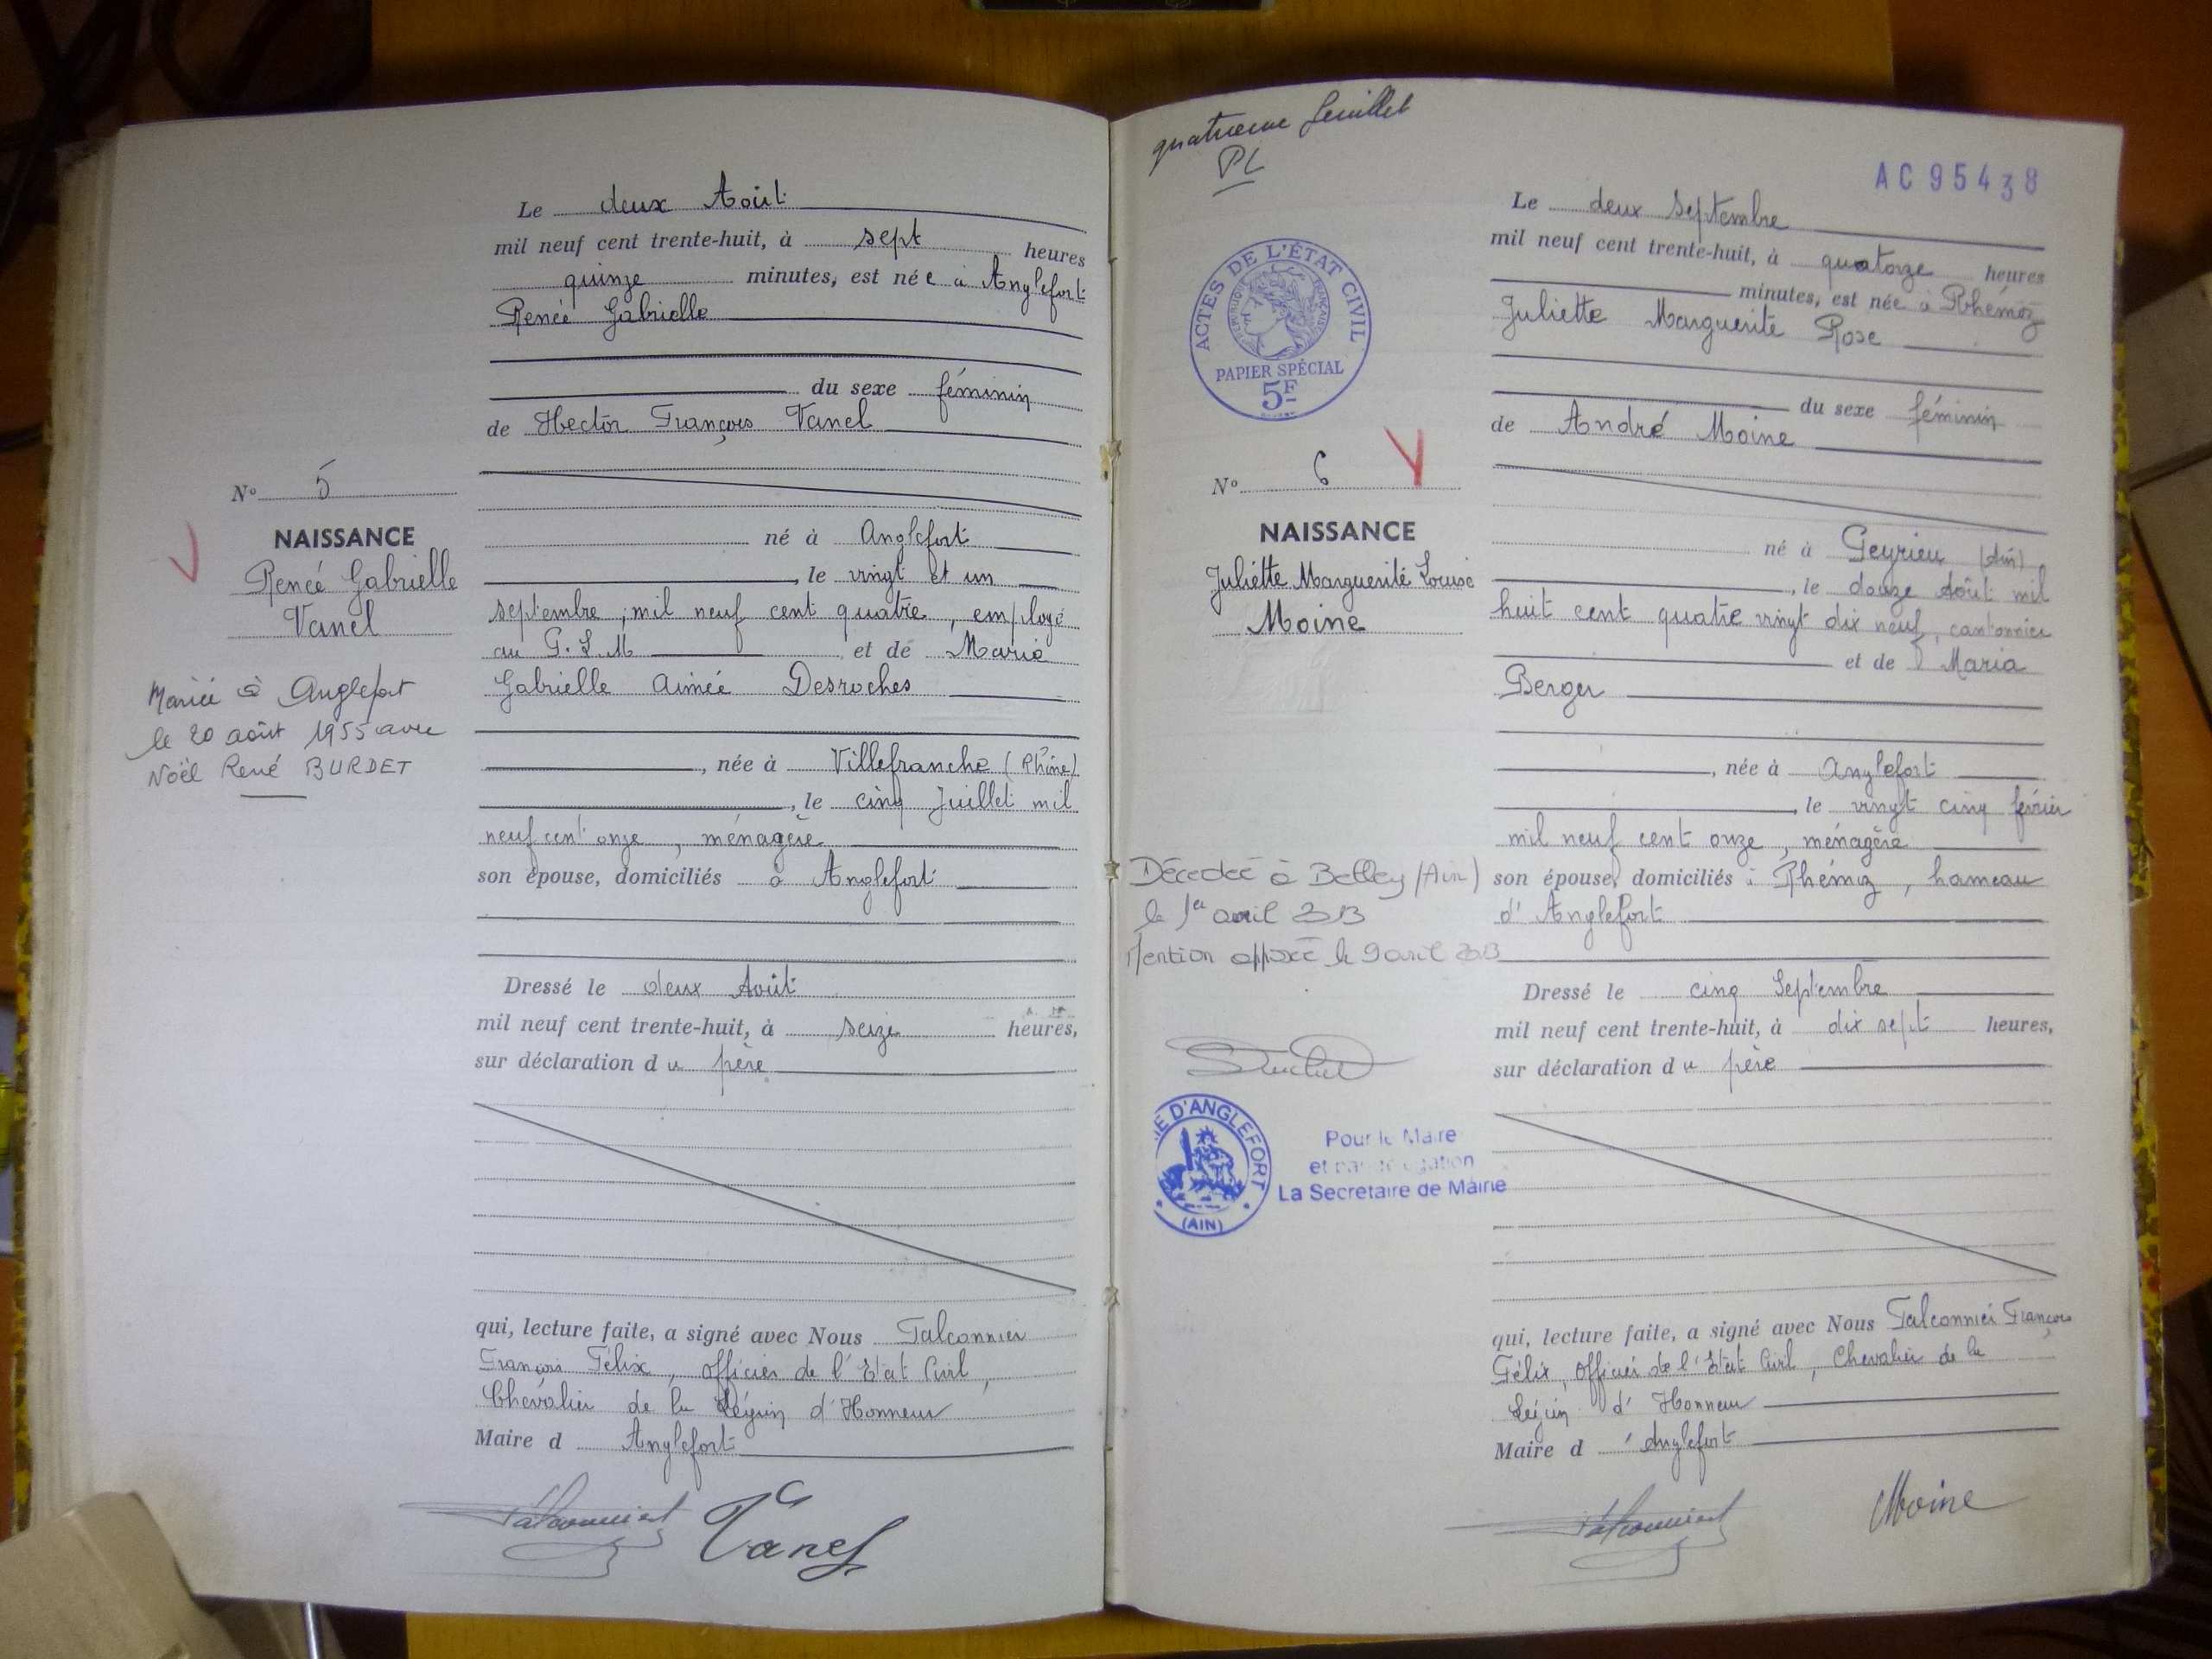 Le deux Août
mil neuf cent trente-huit, à sept heures
quinze minutes, est née à Anglefort
Renée Gabrielle
du sexe féminin
de Hector François Vanel
N° 5
NAISSANCE
Renée Gabrielle
Vanel
Mariée à Anglefort
le 20 août 1955 avec
Noël René BURDET
né à Anglefort
, le vingt et un
septembre, mil neuf cent quatre, employé
au G.L.M et de Marie
Gabrielle Aimée Desroches
, née à Villefranche (Rhône)
, le cinq Juillet mil
neuf cent onze, ménagère
son épouse, domiciliés à Anglefort
Dressé le deux Août
mil neuf cent trente-huit, à seize heures,
sur déclaration du père
qui, lecture faite, a signé avec Nous Falconnier
François Félix, officier de l'Etat Civil,
Chevalier de la Légion d'Honneur
Maire d Anglefort
Vanel
quatrième feuillet
PL
AC95438
ACTES DE L'ÉTAT CIVIL
RÉPUBLIQUE FRANÇAISE
PAPIER SPÉCIAL
5F
Le deux Septembre
mil neuf cent trente-huit, à quatorze heures
minutes, est née à Rhémoz
Juliette Marguerite Rose
du sexe féminin
de André Moine
N° 6
NAISSANCE
Juliette Marguerite
Moine
né à Peyrieu (Ain)
, le douze Août mil
huit cent quatre vingt dix neuf, cantonnier
et de Maria
Berger
, née à Anglefort
, le vingt cinq février
mil neuf cent onze, ménagère
son épouse, domiciliés à Rhémoz, hameau
d'Anglefort
Décédée à Belley (Ain)
le 1er avril 2013
Mention apposée le 9 avril 2013
MAIRIE D'ANGLEFORT
(AIN)
Pour le Maire
et par délégation
La Secrétaire de Mairie
Dressé le cinq Septembre
mil neuf cent trente-huit, à dix sept heures,
sur déclaration du père
qui, lecture faite, a signé avec Nous Falconnier François
Félix, Officier de l'Etat Civil, Chevalier de la
Légion d'Honneur
Maire d'Anglefort
Moine